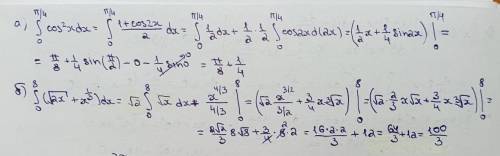 а) ∫₀^{π/4} cos²x dx = ∫₀^{π/4} (1+cos2x)/2 dx = ∫₀^{π/4} 1/2 dx + 1/2 · 1/2 ∫₀^{π/4} cos2x d(2x) = (1/2 x + 1/4 sin2x) |₀^{π/4} =
= π/8 + 1/4 sin(π/2) - 0 - 1/4 sin0⁰ = π/8 + 1/4
б) ∫₀⁸ (√2x + x^{1/3}) dx = √2 ∫₀⁸ √x dx + x^{4/3}/(4/3) |₀⁸ = (√2 x^{3/2}/(3/2) + 3/4 x ∛x) |₀⁸ = (√2 · 2/3 x√x + 3/4 x ∛x) |₀⁸ =
= 2√2/3 8√8 + 3/4 · 8 · 2 = 16·2·2/3 + 12 = 64/3 + 12 = 100/3